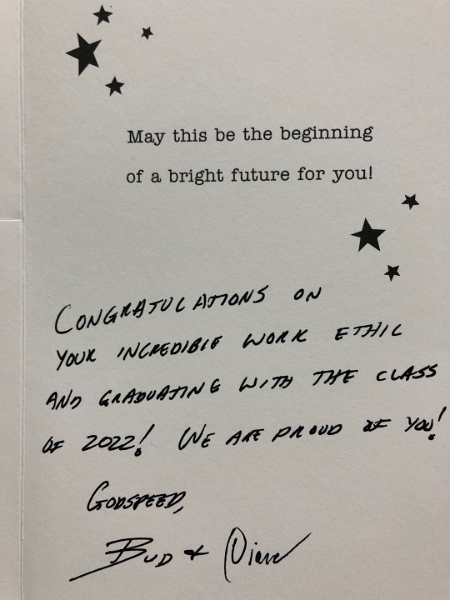 May this be the beginning
of a bright future for you!
CONGRATULATIONS ON
YOUR INCREDIBLE WORK ETHIC
AND GRADUATING WITH THE CLASS
OF 2022! WE ARE PROUD OF YOU!
GODSPEED,
BUD + Diane